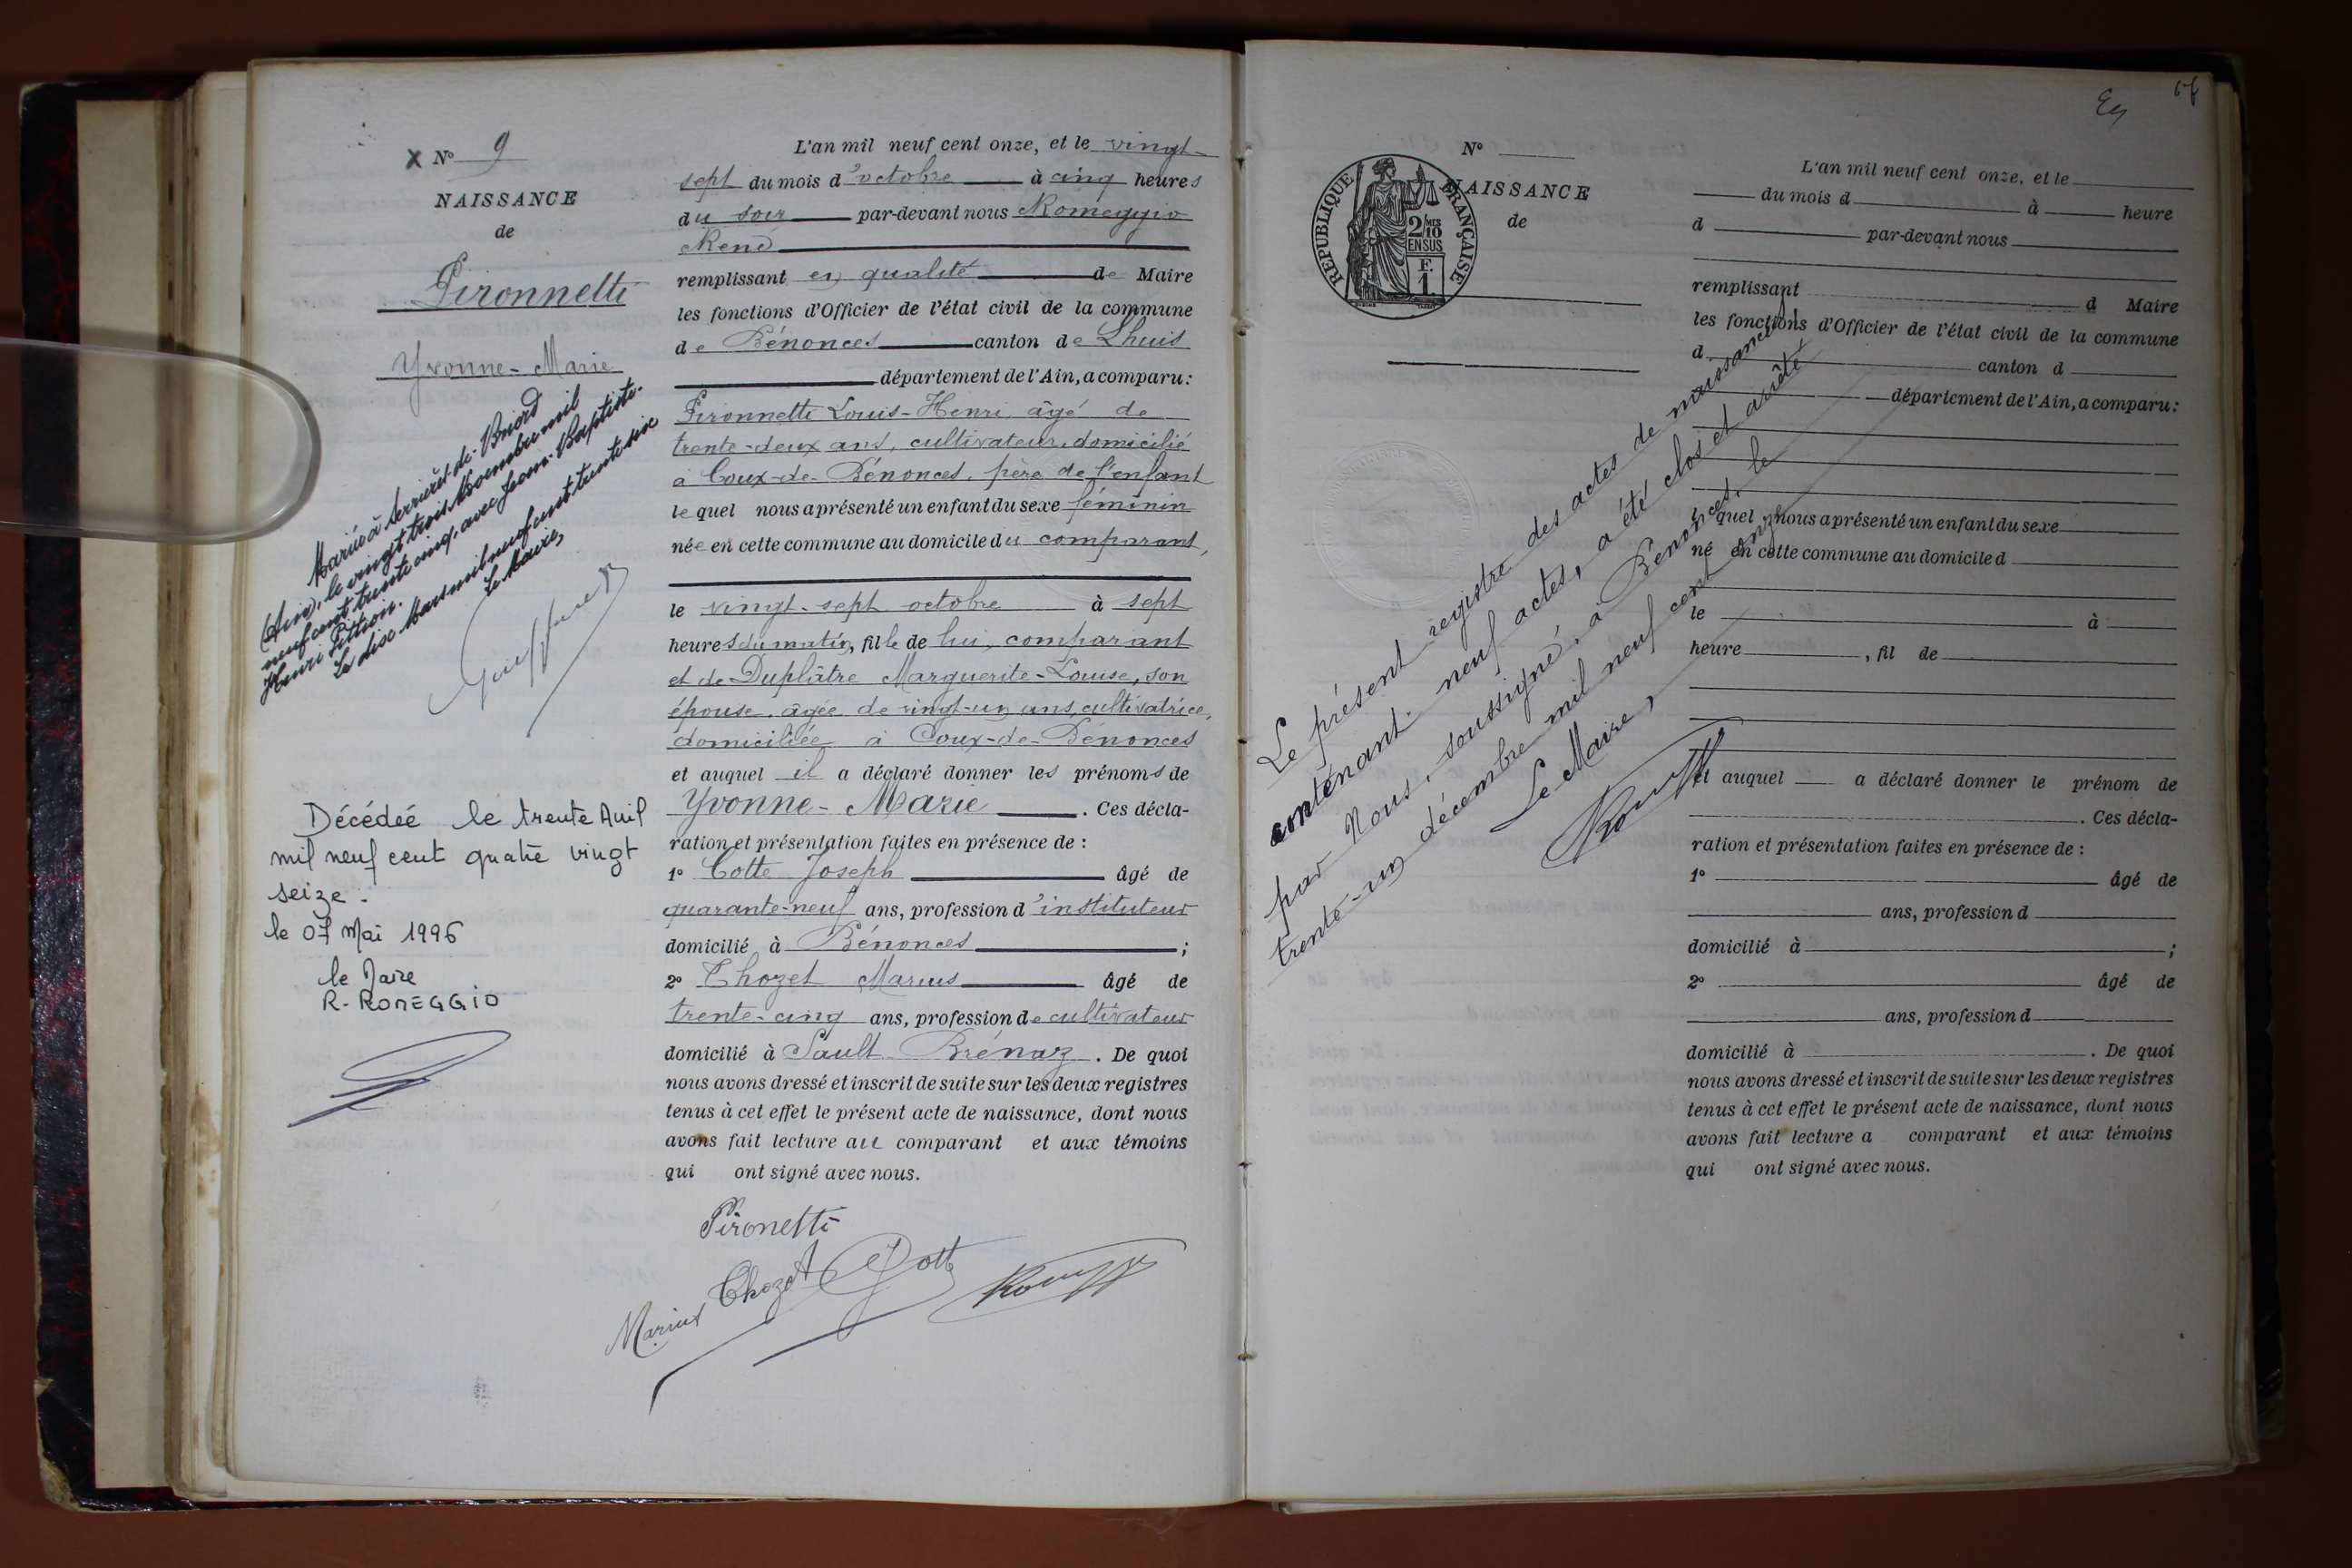 X N° 9
NAISSANCE
de
Pironnetti
Yvonne-Marie
Mariée à Serrières-de-Briord
(Ain), le vingt trois Novembre mil
neuf cent trente cinq, avec Jean-Baptiste-
Henri Pittion.
Le dix Mars mil neuf cent trente six
Le Maire,
Décédée le trente Avril
mil neuf cent quatre vingt
seize.
le 07 Mai 1996
le Maire
R. ROMEGGIO
L'an mil neuf cent onze, et le vingt-
sept du mois d'octobre à cinq heures
du soir par-devant nous Romeggio
René
remplissant en qualité de Maire
les fonctions d'Officier de l'état civil de la commune
de Bénonces canton de Lhuis
département de l'Ain, a comparu:
Pironnetti Louis-Henri, âgé de
trente-deux ans, cultivateur, domicilié
à Coux-de-Bénonces, père de l'enfant
lequel nous a présenté un enfant du sexe féminin
née en cette commune au domicile du comparant,
le vingt-sept octobre à sept
heures du matin, fille de lui, comparant
et de Duplâtre Marguerite-Louise, son
épouse, âgée de vingt-un ans, cultivatrice,
domiciliée à Coux-de-Bénonces
et auquel il a déclaré donner les prénoms de
Yvonne-Marie. Ces décla-
ration et présentation faites en présence de :
1° Cotte Joseph âgé de
quarante-neuf ans, profession d'instituteur
domicilié à Bénonces ;
2° Chozet Marius âgé de
trente-cinq ans, profession de cultivateur
domicilié à Sault-Brénaz. De quoi
nous avons dressé et inscrit de suite sur les deux registres
tenus à cet effet le présent acte de naissance, dont nous
avons fait lecture au comparant et aux témoins
qui ont signé avec nous.
Pironetti
Marius Chozet J Cotte
N°
NAISSANCE
de
RÉPUBLIQUE FRANÇAISE
2/10 MES
EN SUS
F.
1.
L'an mil neuf cent onze, et le
du mois d à heure
d par-devant nous
remplissant d Maire
les fonctions d'Officier de l'état civil de la commune
d canton d
département de l'Ain, a comparu:
lequel nous a présenté un enfant du sexe
né en cette commune au domicile d
le à
heure , fil de
et auquel a déclaré donner le prénom de
. Ces décla-
ration et présentation faites en présence de :
1° âgé de
ans, profession d
domicilié à ;
2° âgé de
ans, profession d
domicilié à . De quoi
nous avons dressé et inscrit de suite sur les deux registres
tenus à cet effet le présent acte de naissance, dont nous
avons fait lecture a comparant et aux témoins
qui ont signé avec nous.
Le présent registre des actes de naissances,
contenant neuf actes, a été clos et arrêté
par Nous, soussigné, à Bénonces, le
trente-un décembre mil neuf cent onze
Le Maire,